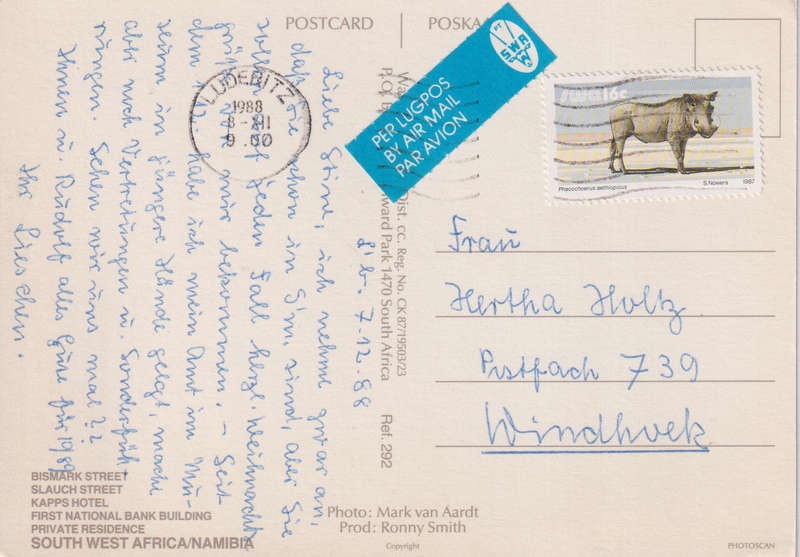 POSTCARD
PER LUGPOS
BY AIR MAIL
PAR AVION
PT
SWA
16c
Phacochoerus aethiopicus
S.Nowers
1987
LÜDERITZ
1988
9.00
L'b. 7-12.88
Liebe Stine, ich nehme zwar an,
daß Sie schon in S'm. sind, aber Sie
sollen auf jeden Fall herzl. Weihnachts-
grüße von mir bekommen. – Seit
dem habe ich mein Amt im Mu-
seum in jüngere Hände gelegt, mache
aber noch Vertretungen u. Sonderfüh-
rungen. Sehen wir uns mal??
Ihnen u. Rudolf alles Gute für 1989
Ihr Lieschen.
Dist. cc. Reg. No. CK 8719503/23
Park 1470 South Africa
Ref. 292
Frau
Hertha Holtz
Postfach 739
Windhoek
BISMARK STREET
SLAUCH STREET
KAPPS HOTEL
FIRST NATIONAL BANK BUILDING
PRIVATE RESIDENCE
SOUTH WEST AFRICA/NAMIBIA
Photo: Mark van Aardt
Prod: Ronny Smith
Copyright
PHOTOSCAN